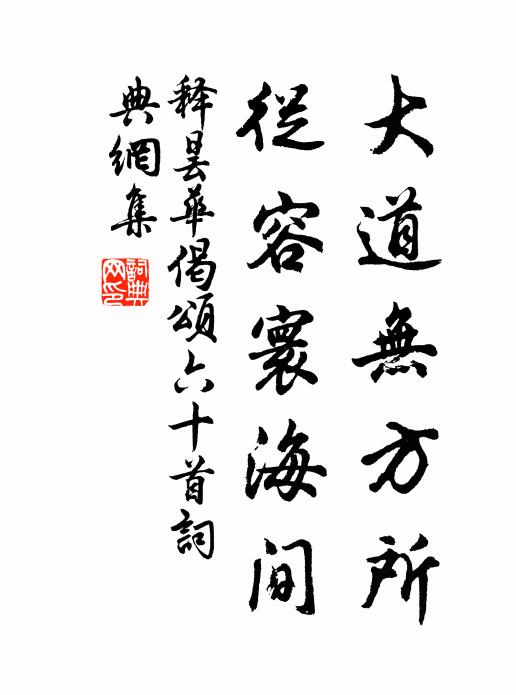 大道無方所
從容寰海间
释昙華偈頌六十首詞
典網集
詞典網印